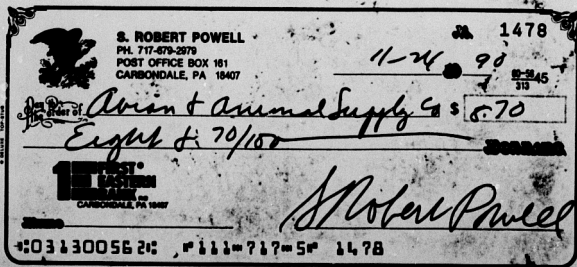 S. ROBERT POWELL
PH. 717-679-2979
POST OFFICE BOX 161
CARBONDALE, PA 18407
1478
11-24 19 90
60-56 45
313
Pay to the order of Avian & Animal Supply Co $ 8.70
Eight & 70/100 DOLLARS
FIRST
EASTERN
BANK
CARBONDALE, PA 18407
S Robert Powell
⑆031300562⑆ ⑈111⑉717⑉5⑈ 1478